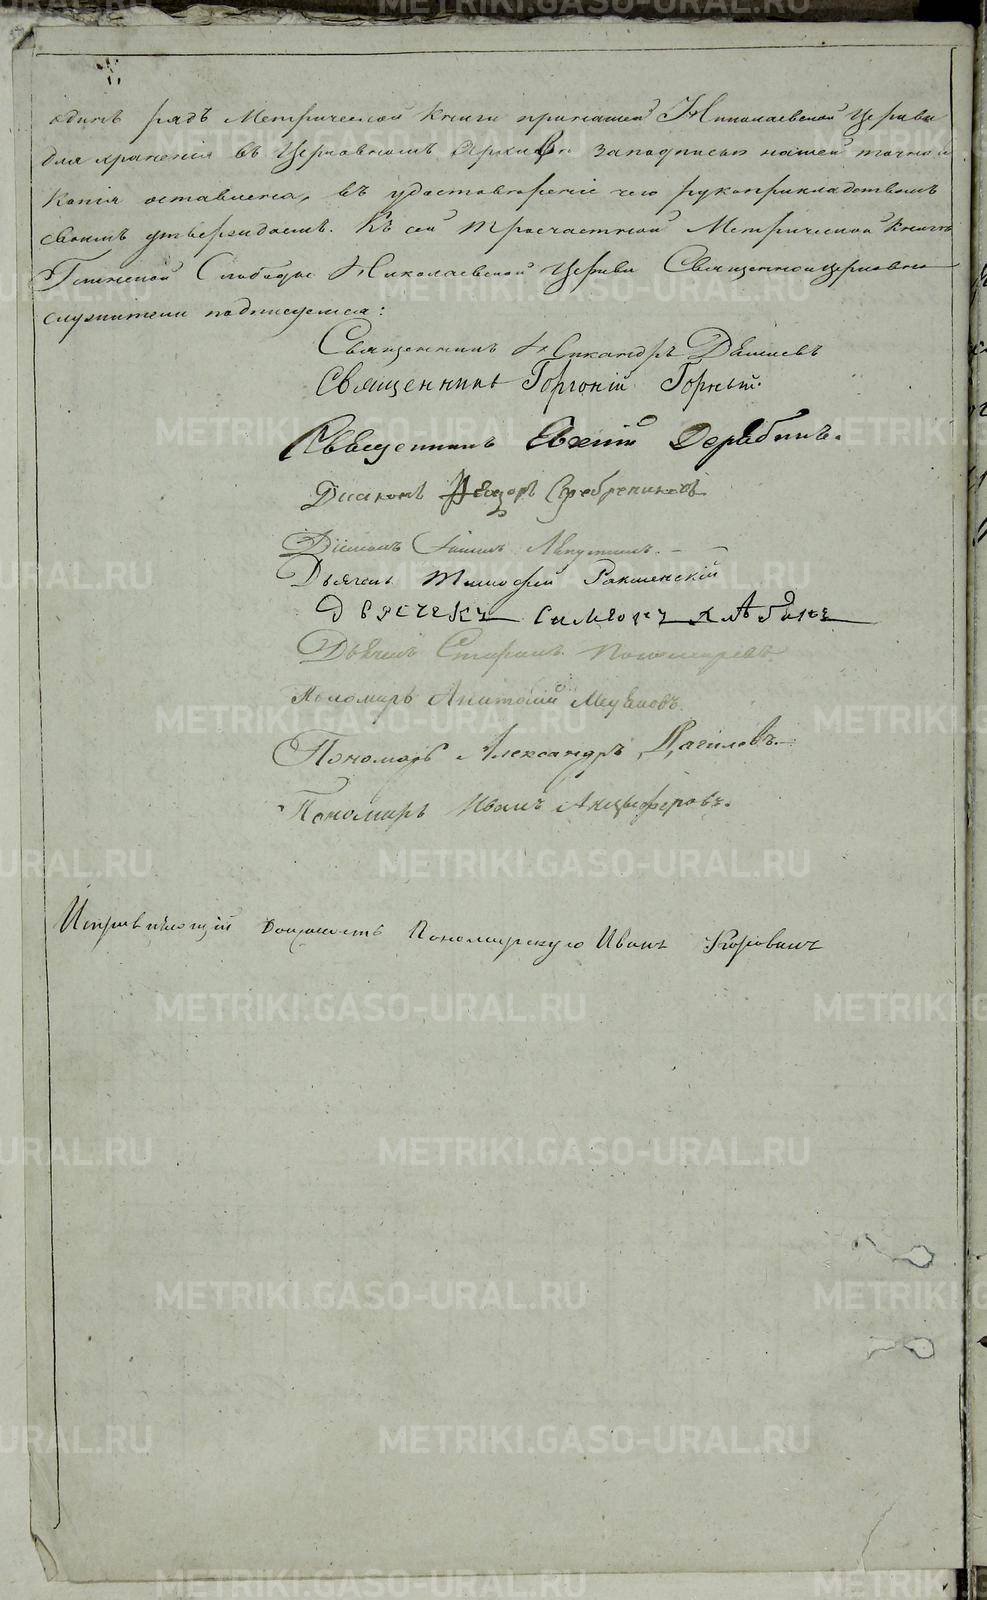 одинъ рядъ Метрической Книги принашей Николаевской Церкви
для храненія въ Церковномъ Архивѣ заподписью нашей точная
Копія оставлена, въ удостовѣреніе чего рукоприкладствомъ
своимъ утверждаемъ. Къ сей троечастной Метрической Книгѣ
Слободы Николаевской Церкви Священноицерковно
служители подписуемся:
Священникъ Никандръ
Священникъ Горгоній Горный.
Священникъ Евгеній Дерябинъ.
Диаконъ Серебрениковъ
Діаконъ
Дьячекъ Тимофей
Дьячекъ Симеонъ Хлѣбинъ
Дьячекъ Стефанъ Пономаревъ.
Пономарь Анатолій
Пономарь Александръ
Пономарь Иванъ Анцыферовъ.
Исправляющій должность Пономарскую Иванъ Коровинъ
METRIKI.GASO-URAL.RU